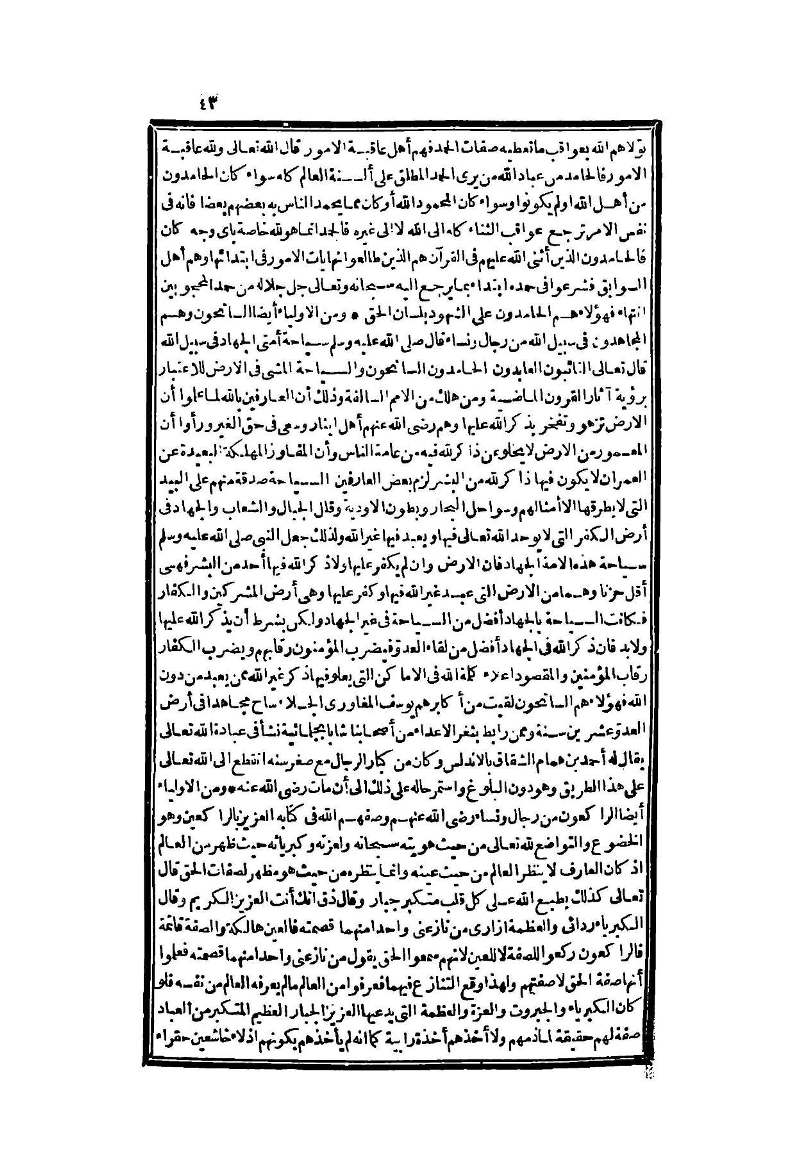 ٤٣
تولاهم الله بعواقب ما تعطيه صفات الحمد فهم أهل عاقبة الامور قال الله تعالى ولله عاقبة
الامور فالحامد من عباد الله من يرى الحمد المطلق على ألسنة العالم كله سواء كان الحامدون
من أهل الله أولم يكونوا وسواء كان المحمود الله أو كان مما يحمد الناس به بعضهم بعضا فانه فى
نفس الامر ترجع عواقب الثناء كله الى الله لا الى غيره فالحمد انما هو لله خاصة باى وجه كان
فالحامدون الذين أثنى الله عليهم فى القرآن هم الذين طالعوا نهايات الامور فى ابتدائها وهم أهل
السوابق فشرعوا فى حمده ابتداء بما يرجع اليه سبحانه وتعالى جل جلاله من حمد المحجوبين
انتهاء فهؤلاء هم الحامدون على الشهود بلسان الحق * ومن الاولياء أيضا السائحون وهم
المجاهدون فى سبيل الله من رجال ونساء قال صلى الله عليه وسلم سياحة أمتى الجهاد فى سبيل الله
قال تعالى التائبون العابدون الحامدون السائحون والسياحة المشى فى الارض للاعتبار
برؤية آثار القرون الماضية ومن هلك من الامم السالفة وذلك أن العارفين بالله لما علموا أن
الارض تزهو وتفخر بذكر الله عليها وهم رضى الله عنهم أهل ايثار وسعى فى حق الغير ورأوا أن
المعمور من الارض لا يخلو عن ذاكر لله فيه من عامة الناس وأن المفاوز المهلكة البعيدة عن
العمران لا يكون فيها ذاكر لله من البشر لزم بعض العارفين السياحة صدقة منهم على البيد
التى لا يطرقها الا أمثالهم وسواحل البحار وبطون الاودية وقال الجبال والشعاب والجهاد فى
أرض الكفر التى لا يوحد الله تعالى فيها ويعبد فيها غير الله ولذلك جعل النبى صلى الله عليه وسلم
سياحة هذه الامة الجهاد فان الارض وان لم يكفر عليها ولا ذكر الله فيها أحد من البشر فهى
أقل حزنا وهما من الارض التى عبد غير الله فيها وكفر عليها وهى أرض المشركين والكفار
فكانت السياحة بالجهاد أفضل من السياحة فى غير الجهاد ولكن بشرط أن يذكر الله عليها
ولابد فان ذكر الله فى الجهاد أفضل من لقاء العدو فيضرب المؤمنون رقابهم ويضرب الكفار
رقاب المؤمنين والمقصود اعلاء كلمة الله فى الاماكن التى يعلو فيها ذكر غير الله ممن يعبد من دون
الله فهؤلاء هم السائحون لقيت من أكابرهم يوسف المغاورى الجلاء ساح مجاهدا فى أرض
العدو عشرين سنة وممن رابط بثغر الاعداء من أصحابنا شاب بجلمانية نشأ فى عبادة الله تعالى
يقال له أحمد بن همام الشقاق بالاندلس وكان من كبار الرجال مع صغر سنه انقطع الى الله تعالى
على هذا الطريق وهو دون البلوغ واستمر حاله على ذلك الى أن مات رضى الله عنه * ومن الاولياء
أيضا الراكعون من رجال ونساء رضى الله عنهم وصفهم الله فى كتابه العزيز بالراكعين وهو
الخضوع والتواضع لله تعالى من حيث هويته سبحانه ولعزته وكبريائه حيث ظهر من العالم
اذ كان العارف لا ينظر العالم من حيث عينه وانما ينظره من حيث هو مظهر لصفات الحق قال
تعالى كذلك يطبع الله على كل قلب متكبر جبار وقال ذق انك أنت العزيز الكريم وقال
الكبرياء ردائى والعظمة ازارى من نازعنى واحدا منهما قصمته فالعين هالكة والصفة قائمة
فالراكعون ركعوا للصفة لا للعين لانهم سمعوا الحق يقول من نازعنى واحدا منهما قصمته فعلموا
أنها صفة الحق لا صفتهم ولهذا وقع التنازع فيهما فعرفوا من العالم ما لم يعرفه العالم من نفسه فلو
كان الكبرياء والجبروت والعزة والعظمة التى يدعيها العزيز الجبار العظيم المتكبر من العباد
صفة لهم حقيقة لما ذمهم ولا أخذهم أخذة رابية كما انه لم يأخذهم بكونهم اذلاء خاشعين حقراء